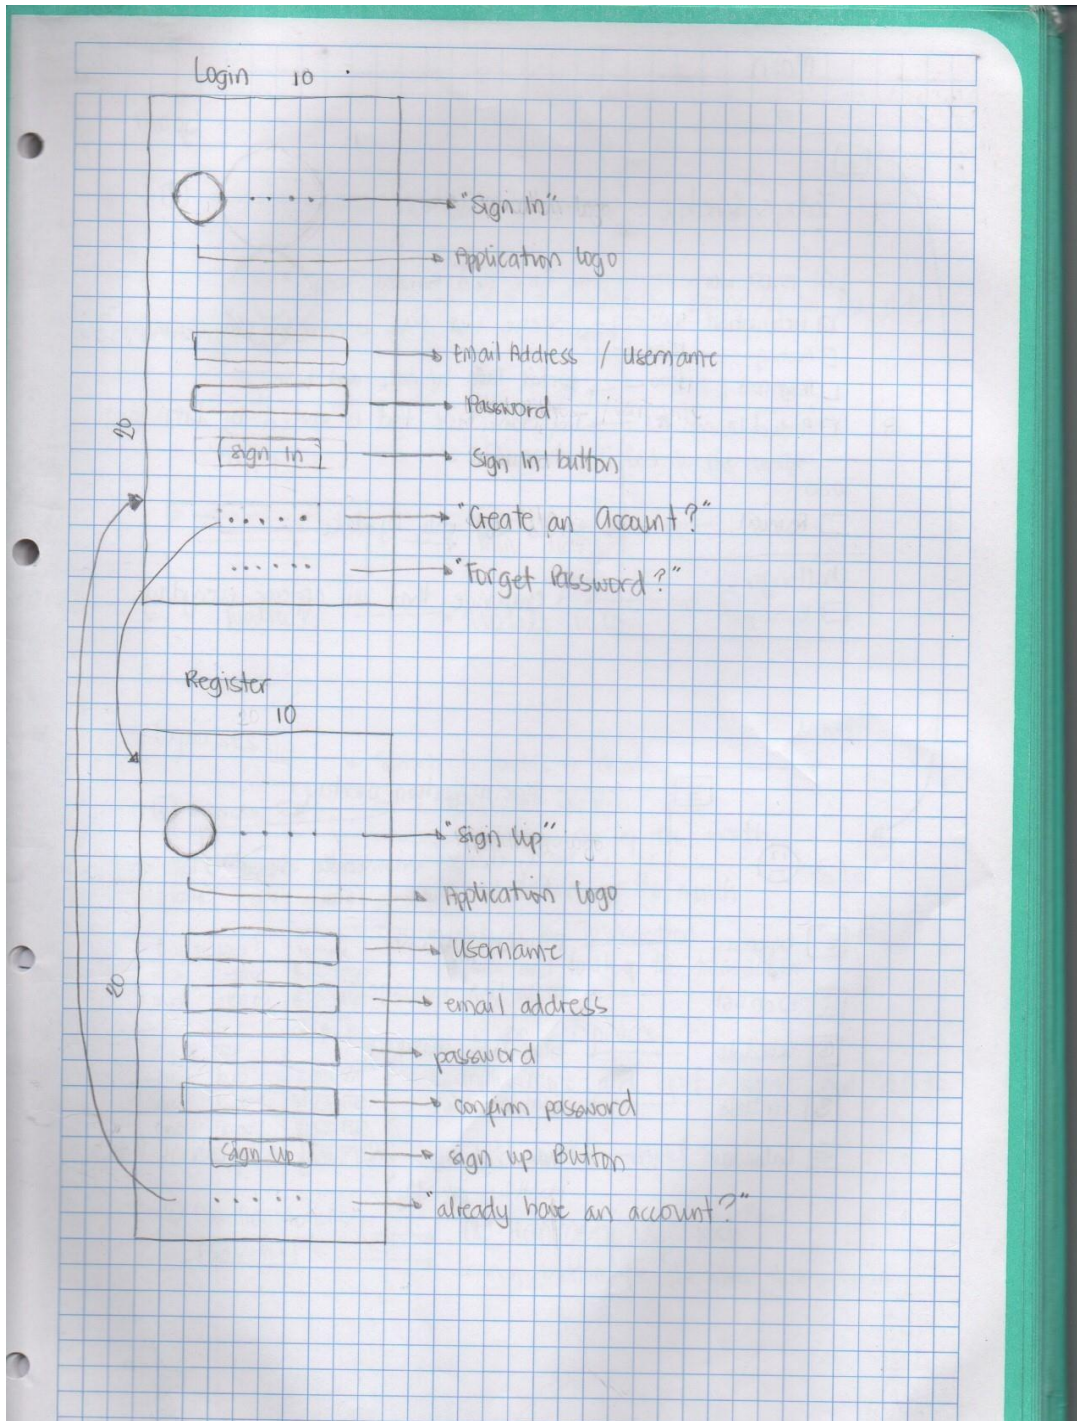 Login 10
"Sign In"
Application logo
Email Address / Username
Password
20
Sign In
Sign In button
"Create an Account?"
"Forget Password?"
Register
10
"Sign Up"
Application logo
Username
20
email address
password
confirm password
Sign Up
sign up Button
"already have an account?"